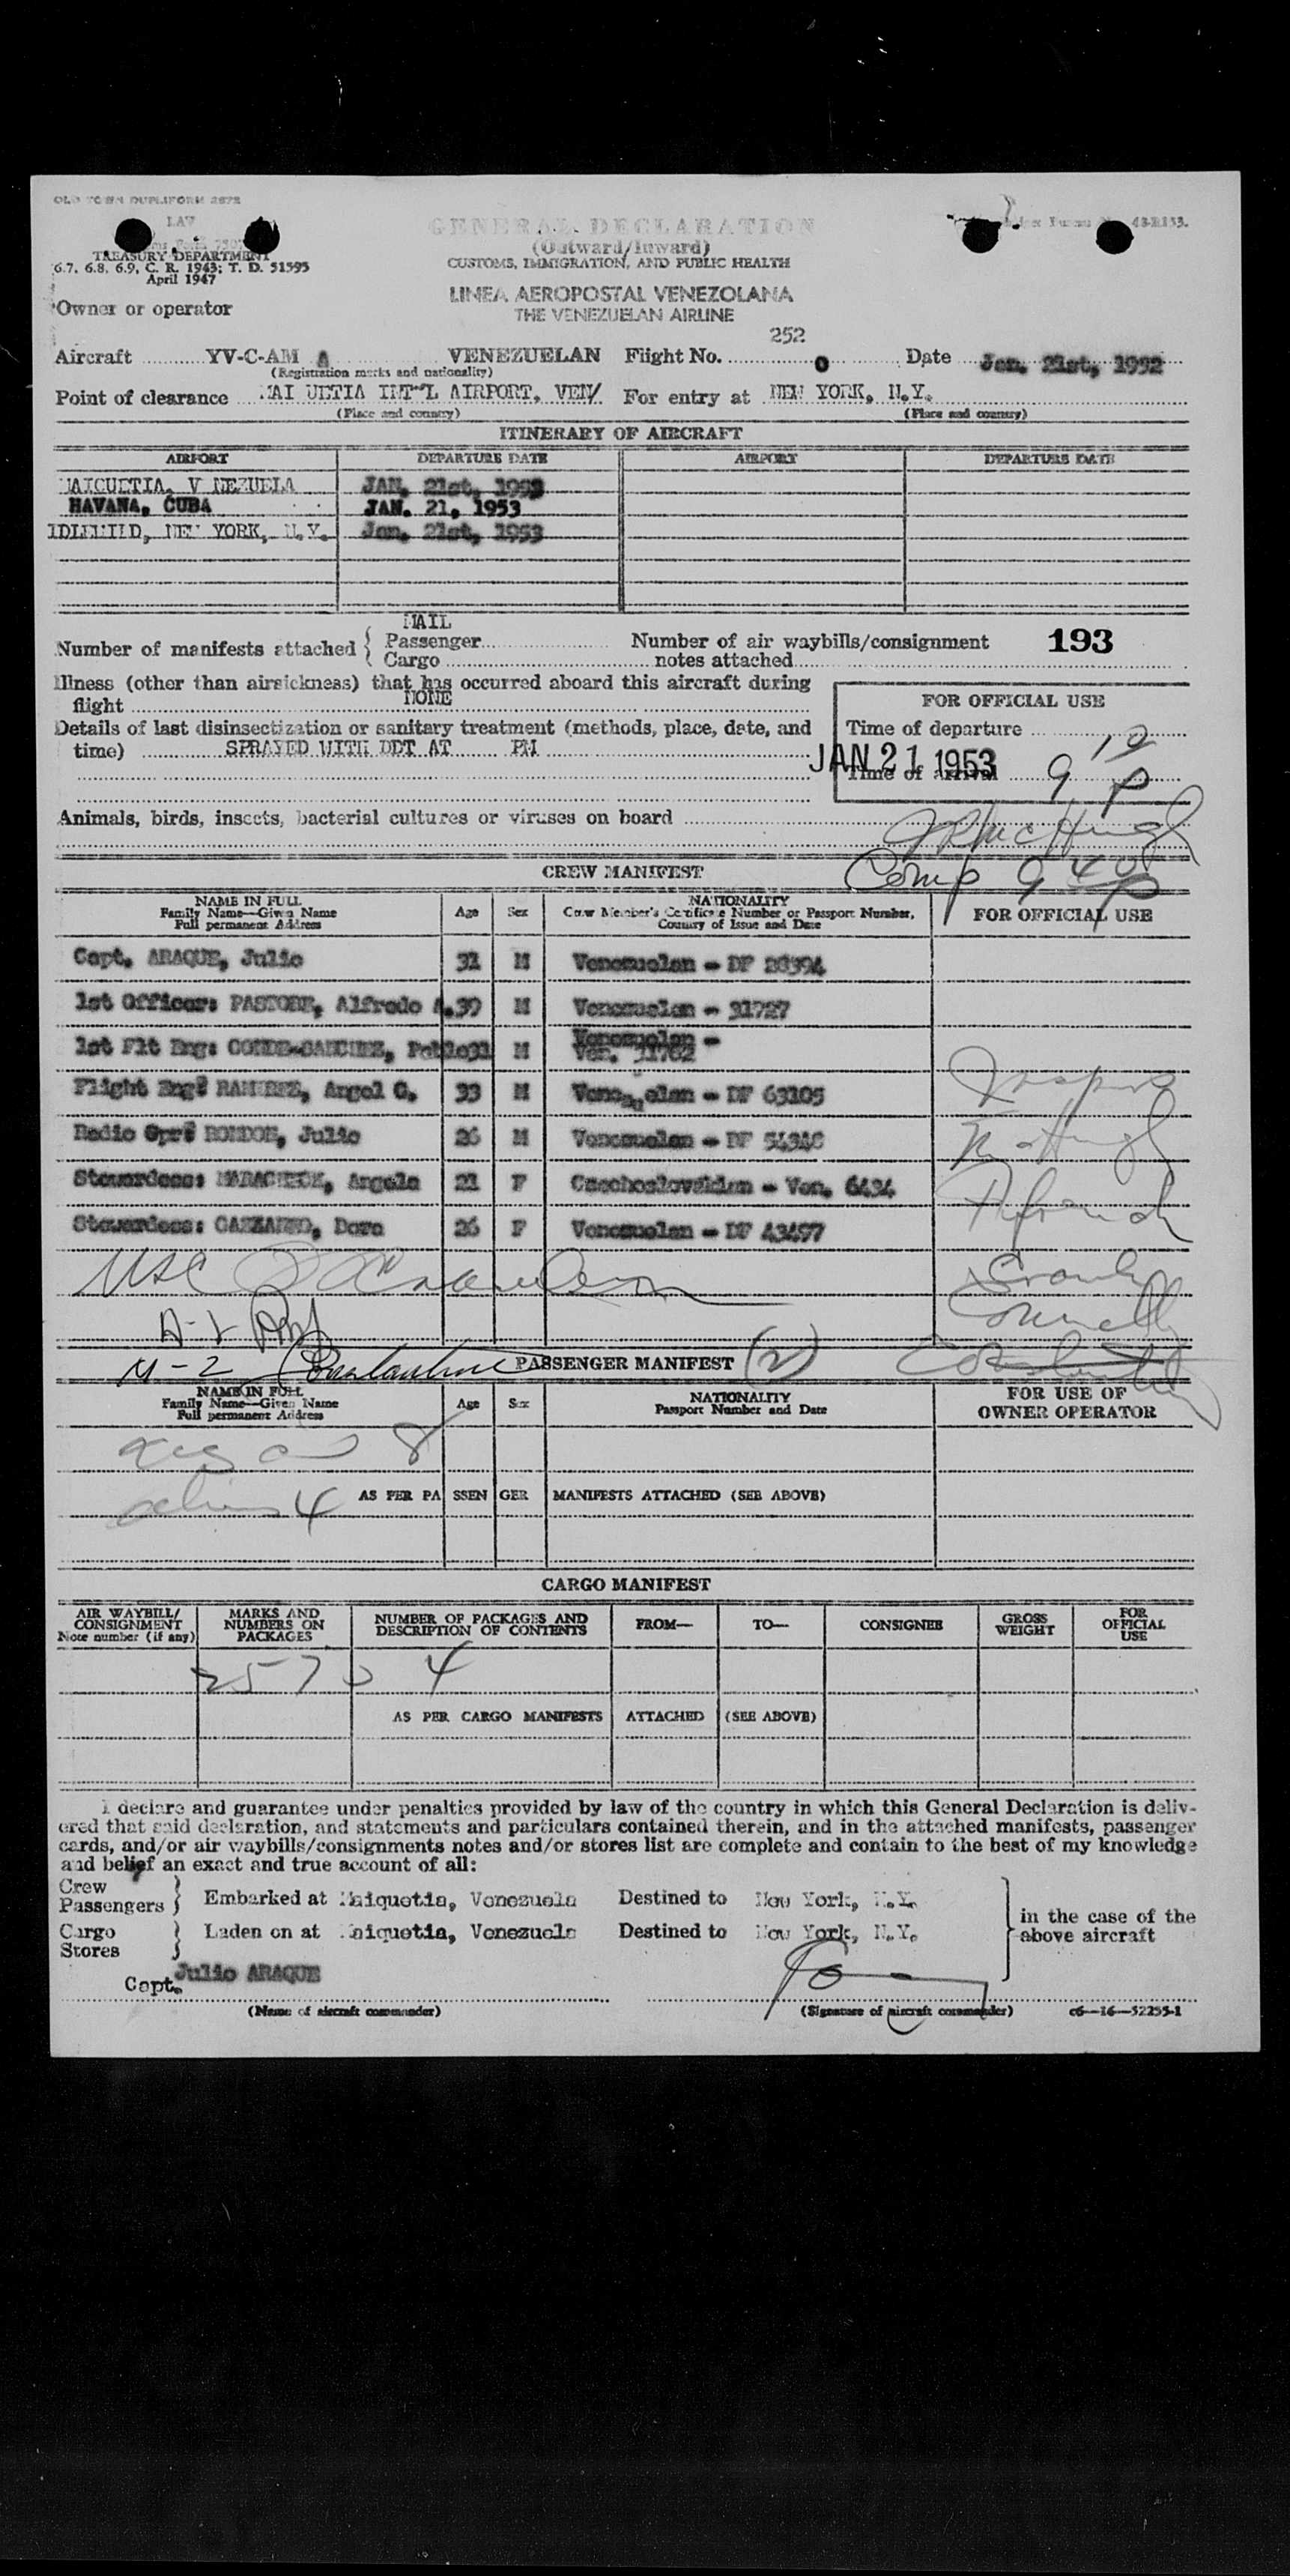 OLD TOWN DUPLIFORM 2872
LAV
GENERAL DECLARATION
43-R133.
(Outward/Inward)
TREASURY DEPARTMENT
CUSTOMS, IMMIGRATION, AND PUBLIC HEALTH
6.7, 6.8, 6.9, C. R. 1943; T. D. 51595
April 1947
LINEA AEROPOSTAL VENEZOLANA
Owner or operator
THE VENEZUELAN AIRLINE
252
Aircraft YV-C-AM A VENEZUELAN Flight No. 0 Date Jan. 21st, 1952
(Registration marks and nationality)
Point of clearance MAI UETIA INT'L AIRPORT, VEN/ For entry at NEW YORK, N.Y.
(Place and country) (Place and country)
ITINERARY OF AIRCRAFT
AIRPORT DEPARTURE DATE AIRPORT DEPARTURE DATE
MAIQUETIA, V NEZUELA JAN. 21st, 1953
HAVANA, CUBA JAN. 21, 1953
IDLEWILD, NEW YORK, N.Y. Jan. 21st, 1953
MAIL
Number of manifests attached { Passenger Number of air waybills/consignment 193
Cargo notes attached
Illness (other than airsickness) that has occurred aboard this aircraft during
flight NONE
FOR OFFICIAL USE
Details of last disinsectization or sanitary treatment (methods, place, date, and
Time of departure
time) SPRAYED WITH DDT AT PM
JAN 21 1953
Time of arrival 9 10 P
Animals, birds, insects, bacterial cultures or viruses on board
Comp 9 40 P
CREW MANIFEST
NAME IN FULL
Family Name—Given Name
Full permanent Address
Age Sex
NATIONALITY
Crew Member's Certificate Number or Passport Number,
Country of Issue and Date
FOR OFFICIAL USE
Capt. ARAQUE, Julio 31 M Venezuelan - DF 20394
1st Officer: PASTORE, Alfredo A. 39 M Venezuelan - 31727
1st Flt Eng: CONDE-SANCHEZ, Pablo 31 M Venezuelan -
Ven. 31762
Flight Eng: RAMIREZ, Angel G. 33 M Venezuelan - DF 63105
Radio Opr: RONDON, Julio 26 M Venezuelan - DF 54346
Stewardess: Angela 21 F Czechoslovakian - Ven. 6434
Stewardess: Dora 26 F Venezuelan - DF 43497
M-2
PASSENGER MANIFEST (2)
NAME IN FULL
Family Name—Given Name
Full permanent Address
Age Sex
NATIONALITY
Passport Number and Date
FOR USE OF
OWNER OPERATOR
8
4 AS PER PA SSEN GER MANIFESTS ATTACHED (SEE ABOVE)
CARGO MANIFEST
AIR WAYBILL/
CONSIGNMENT
Note number (if any)
MARKS AND
NUMBERS ON
PACKAGES
NUMBER OF PACKAGES AND
DESCRIPTION OF CONTENTS
FROM— TO— CONSIGNEE
GROSS
WEIGHT
FOR
OFFICIAL
USE
4
AS PER CARGO MANIFESTS ATTACHED (SEE ABOVE)
I declare and guarantee under penalties provided by law of the country in which this General Declaration is deliv-
ered that said declaration, and statements and particulars contained therein, and in the attached manifests, passenger
cards, and/or air waybills/consignments notes and/or stores list are complete and contain to the best of my knowledge
and belief an exact and true account of all:
Crew
Passengers } Embarked at Maiquetia, Venezuela Destined to New York, N.Y.
Cargo
Stores } Laden on at Maiquetia, Venezuela Destined to New York, N.Y.
in the case of the
above aircraft
Capt. Julio ARAQUE
(Name of aircraft commander) (Signature of aircraft commander) c6—16—52255-1